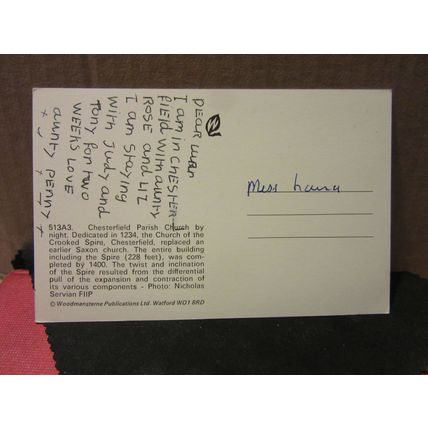 DEAR
I am in CHESTER-
FIELD with AUNTY
ROSE and LIZ
I am STAYING
WITH JUDY and
TONY for TWO
WEEKS LOVE
aunty PENNY x
513A3. Chesterfield Parish Church by
night. Dedicated in 1234, the Church of the
Crooked Spire, Chesterfield, replaced an
earlier Saxon church. The entire building
including the Spire (228 feet), was com-
pleted by 1400. The twist and inclination
of the Spire resulted from the differential
pull of the expansion and contraction of
its various components - Photo: Nicholas
Servian FIIP
© Woodmansterne Publications Ltd. Watford WD1 8RD
Miss Laura